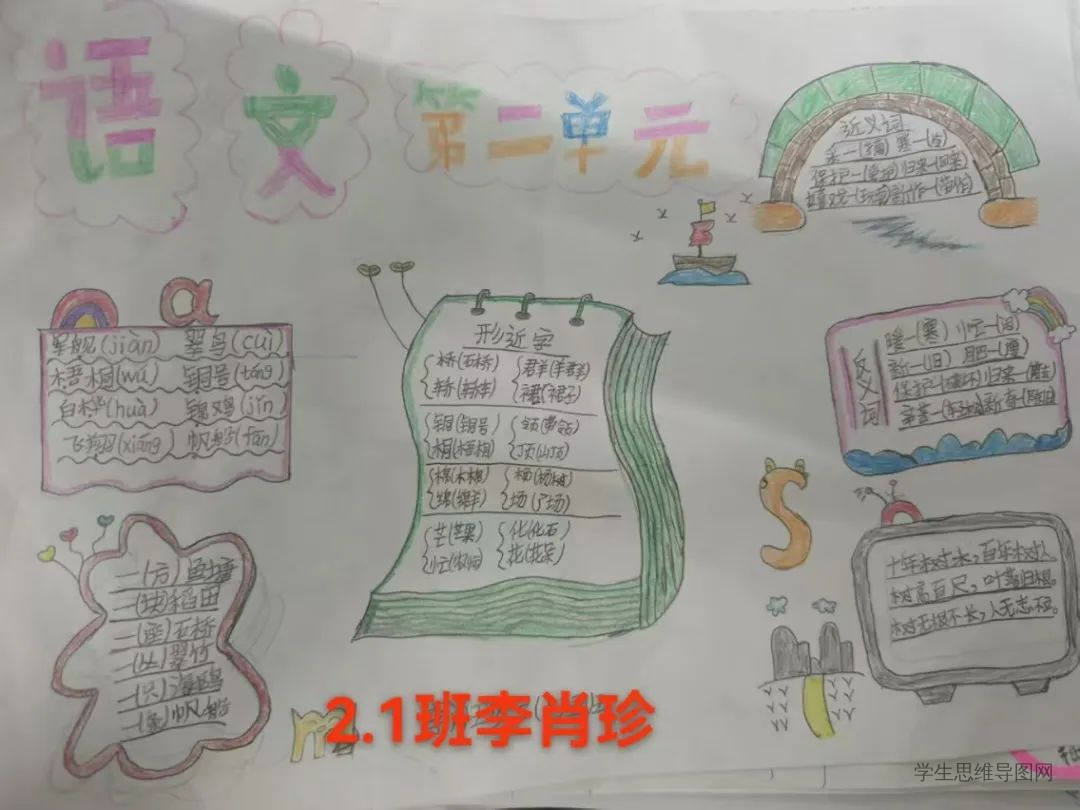 语文第二单元
近义词
寒—(冷)
保护—(爱护) 归来—(回来)
α
军舰(jiàn) 翠鸟(cuì)
梧桐(wú) 铜号(tóng)
白桦(huà) 锦鸡(jǐn)
飞翔(xiáng) 帆船(fān)
形近字
桥(石桥) 群(羊群)
轿(轿车) 裙(裙子)
铜(铜号) 领(带领)
桐(梧桐) 顶(山顶)
棉(木棉) 杨(杨树)
绵(绵羊) 场(广场)
芒(芒果) 化(化石)
忙(农忙) 花(花朵)
反义词
暖—(寒) 忙—(闲)
新—(旧) 肥—(瘦)
保护—(破坏) 归来—(离去)
S
一(方)鱼塘
一(块)稻田
一(座)石桥
一(丛)翠竹
一(只)海鸥
十年树木，百年树人。
树高百尺，叶落归根。
树无根不长，人无志不立。
m
2.1班李肖珍
学生思维导图网